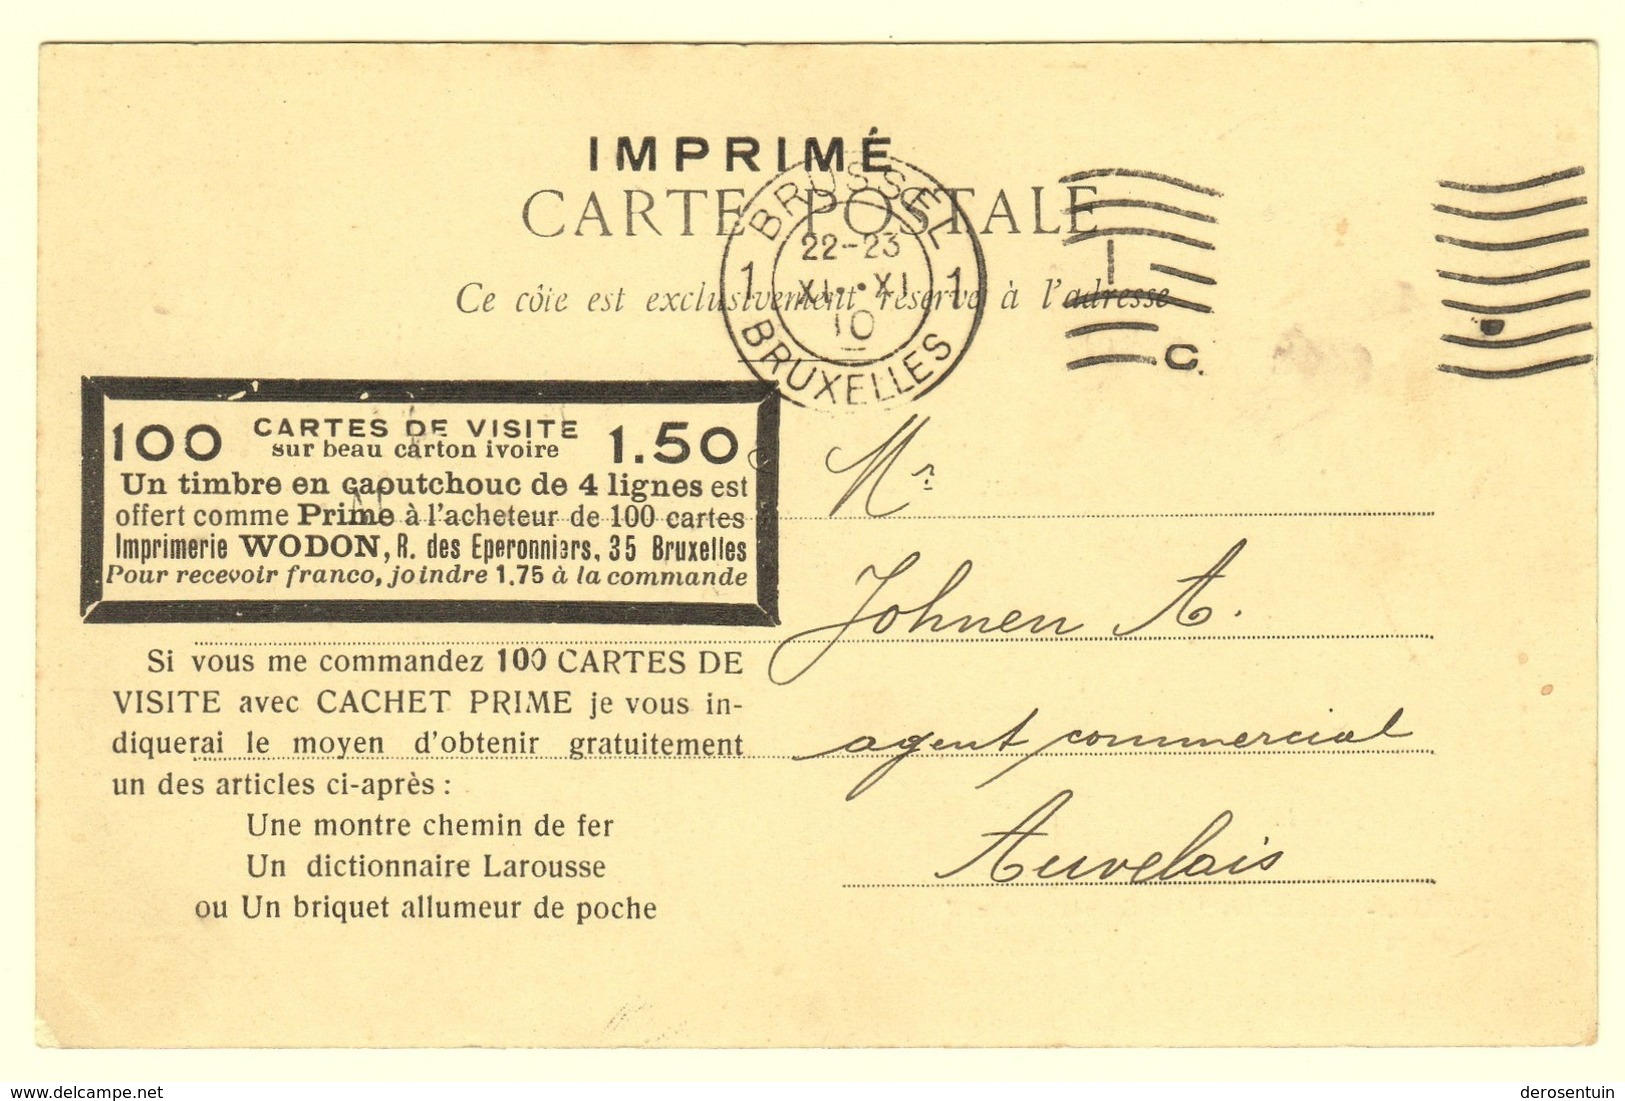 IMPRIMÉ
CARTE POSTALE
Ce côte est exclusivement réservé à l'adresse
BRUSSEL
1 22-23 1
XI··XI
10
BRUXELLES
C.
100 CARTES DE VISITE 1.50
sur beau carton ivoire
Un timbre en caoutchouc de 4 lignes est
offert comme Prime à l'acheteur de 100 cartes
Imprimerie WODON, R. des Eperonniers, 35 Bruxelles
Pour recevoir franco, joindre 1.75 à la commande
Si vous me commandez 100 CARTES DE
VISITE avec CACHET PRIME je vous in-
diquerai le moyen d'obtenir gratuitement
un des articles ci-après :
Une montre chemin de fer
Un dictionnaire Larousse
ou Un briquet allumeur de poche
Mr
Johnen A.
agent commercial
Auvelais
delcampe.net
derosentuin